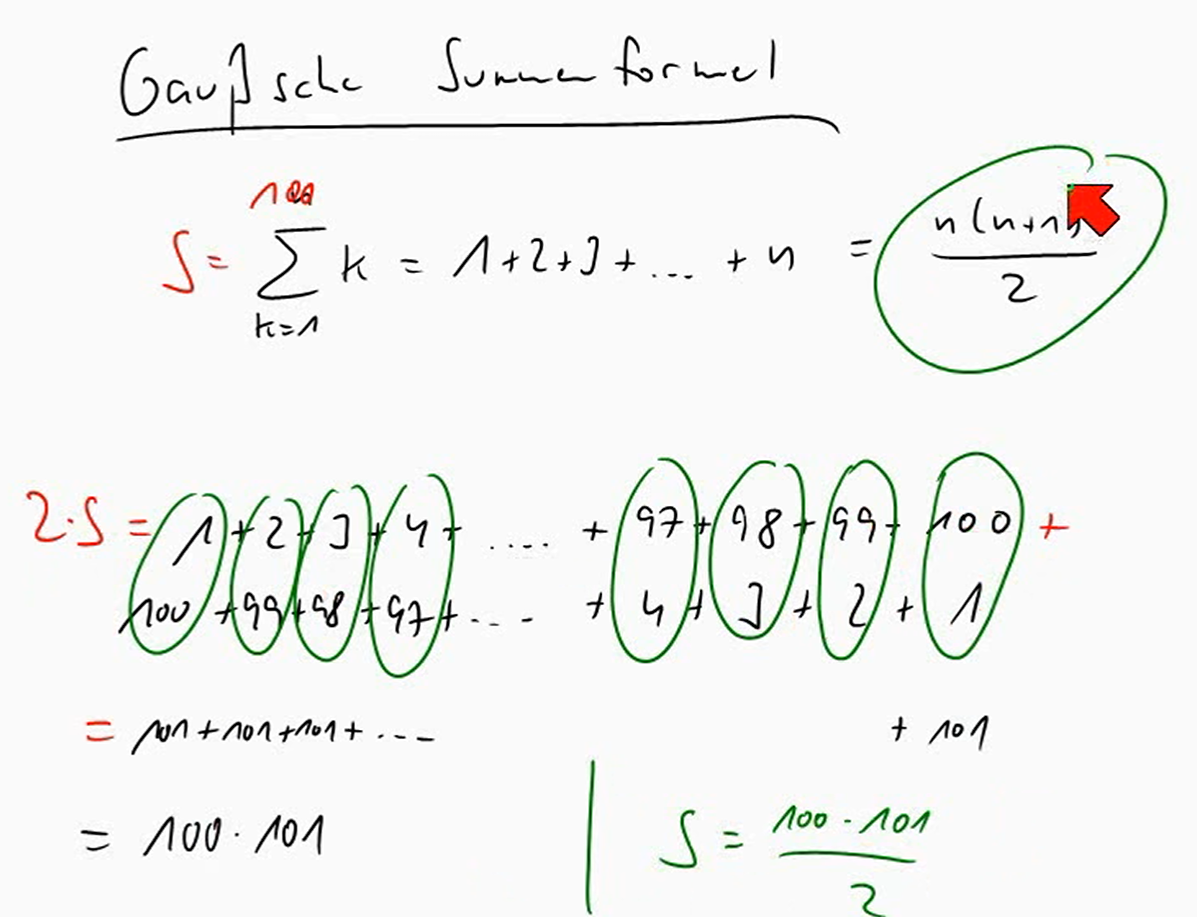 Gaußsche Summenformel
S = ∑_{k=1}^{100} k = 1+2+3+ ... + n = n(n+1)/2
2·S = 1+2+3+4+ .... + 97+98+99+ 100 +
100 +99+98+97+... + 4 + 3 + 2 + 1
= 101+101+101+... + 101
= 100·101
S = 100·101/2